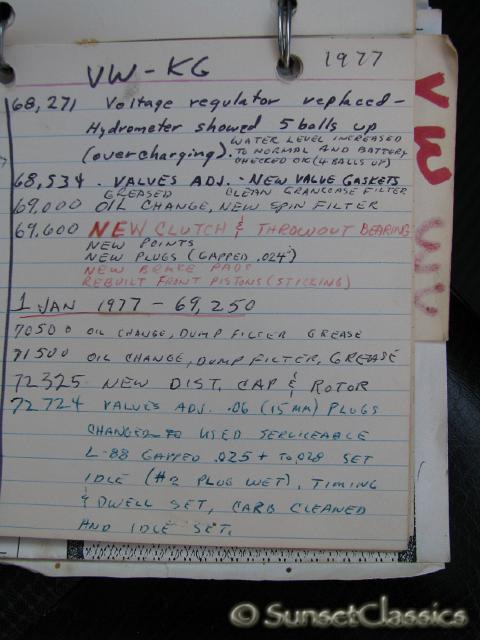 1977
VW-KG
68,271 Voltage regulator replaced-
Hydrometer showed 5 balls up
(overcharging). WATER LEVEL INCREASED
TO NORMAL AND BATTERY
CHECKED OK (4 BALLS UP)
68,534 . VALVES ADJ. - NEW VALVE GASKETS
GREASED CLEAN CRANKCASE FILTER
69,000 OIL CHANGE, NEW SPIN FILTER
69,600 NEW CLUTCH & THROWOUT BEARING
NEW POINTS
NEW PLUGS (GAPPED .024")
NEW BRAKE PADS
REBUILT FRONT PISTONS (STICKING)
1 JAN 1977 - 69,250
70500 OIL CHANGE, DUMP FILTER GREASE
71500 OIL CHANGE, DUMP FILTER, GREASE
72325 NEW DIST. CAP & ROTOR
72724 VALVES ADJ. .06 (15MM) PLUGS
CHANGED TO USED SERVICEABLE
L-88 GAPPED .025+ TO .028 SET
IDLE (#2 PLUG WET), TIMING
& DWELL SET, CARB CLEANED
AND IDLE SET.
VW
VW
© SunsetClassics